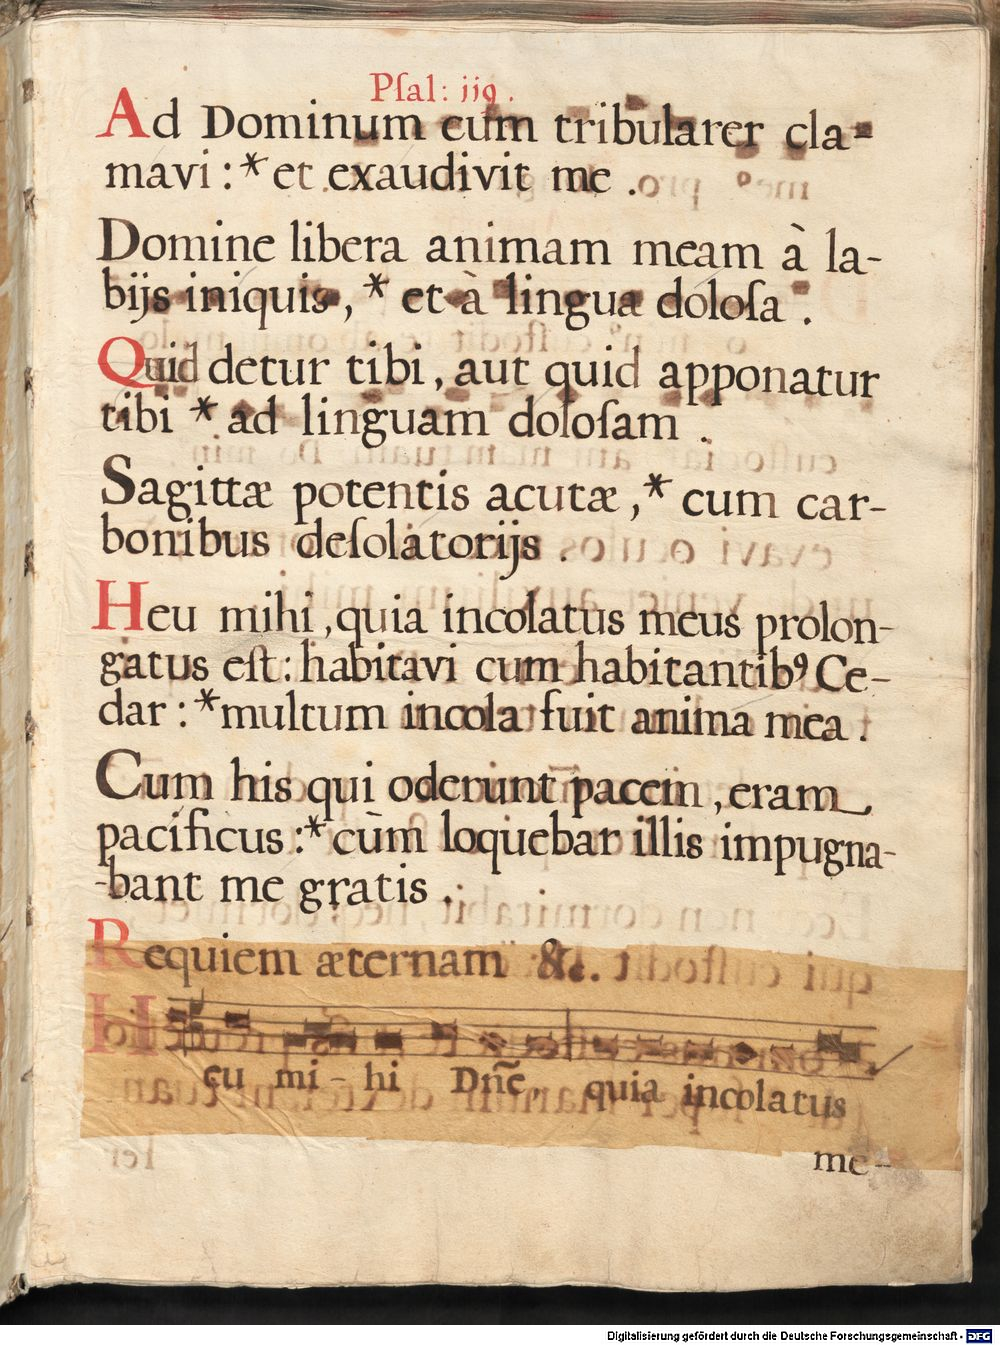 Pſal: 119.
Ad Dominum cum tribularer cla-
mavi: * et exaudivit me .
Domine libera animam meam à la-
bijs iniquis, * et à lingua doloſa .
Quid detur tibi, aut quid apponatur
tibi * ad linguam doloſam .
Sagittæ potentis acutæ, * cum car-
bonibus deſolatorijs .
Heu mihi, quia incolatus meus prolon-
gatus eſt: habitavi cum habitantibꝰ Ce-
dar: * multum incola fuit anima mea .
Cum his qui oderunt pacem, eram
pacificus: * cùm loquebar illis impugna-
-bant me gratis .
Requiem æternam &c.
Heu mi - hi Dn̄e, quia incolatus
me-
Digitalisierung gefördert durch die Deutsche Forschungsgemeinschaft - DFG